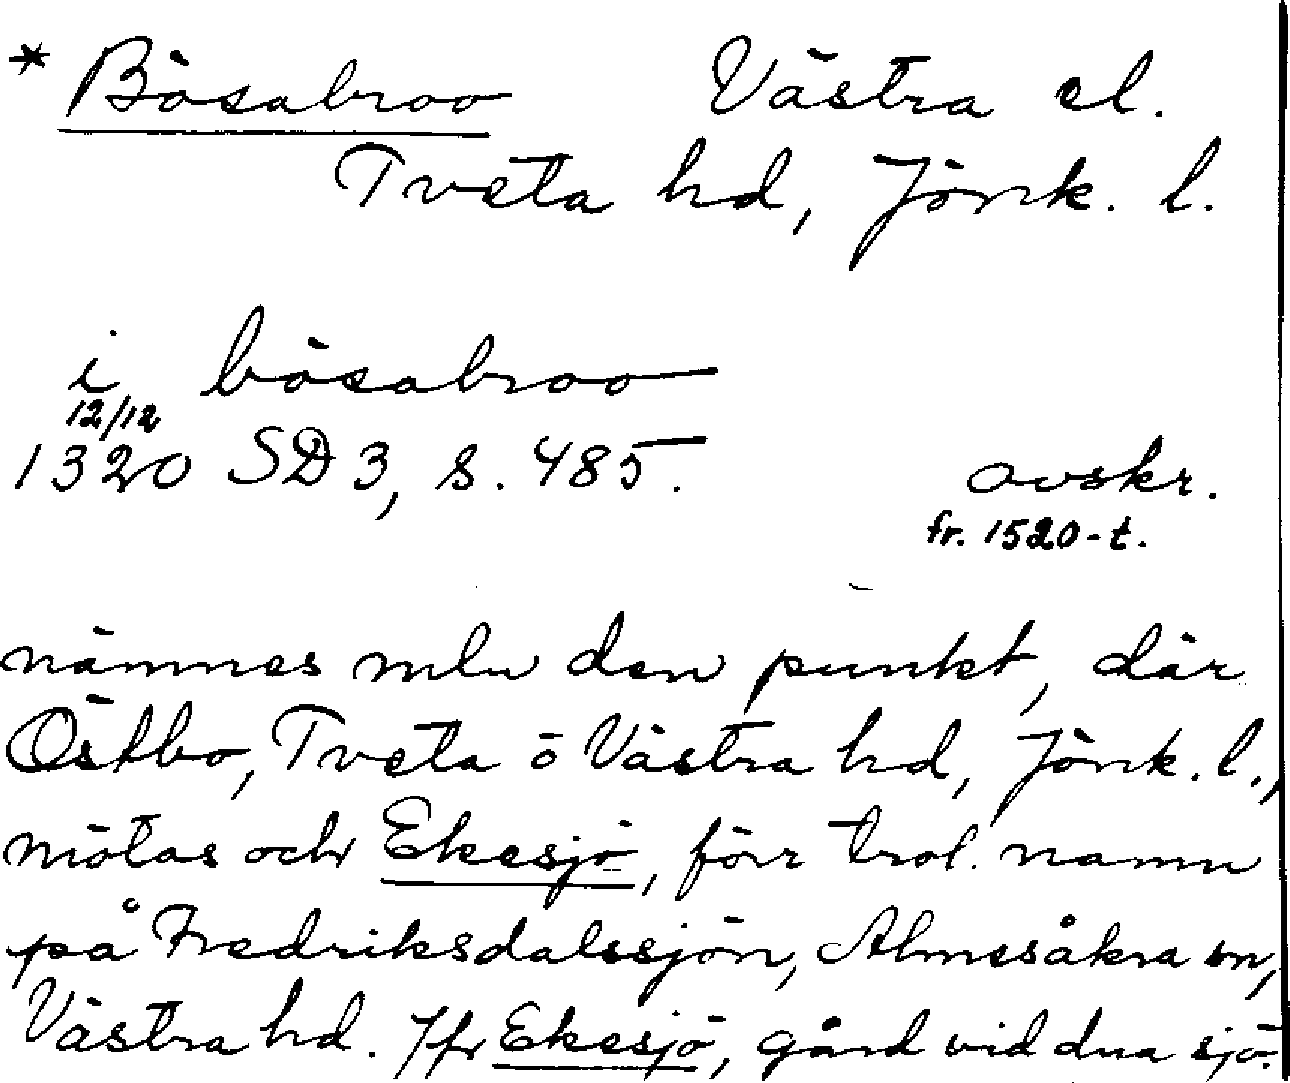 * Bösabroo Västra el.
Tveta hd, Jönk. l.
i bösabroo
12/12
1320 SD 3, s. 485.
avskr.
fr. 1520-t.
nämnes mln den punkt, där
Östbo, Tveta o Västra hd, Jönk. l.,
mötas och Ekesjö, förr trol. namn
på Fredriksdalssjön, Almesåkra sn,
Västra hd. Jfr Ekesjö, gård vid dna sjö.